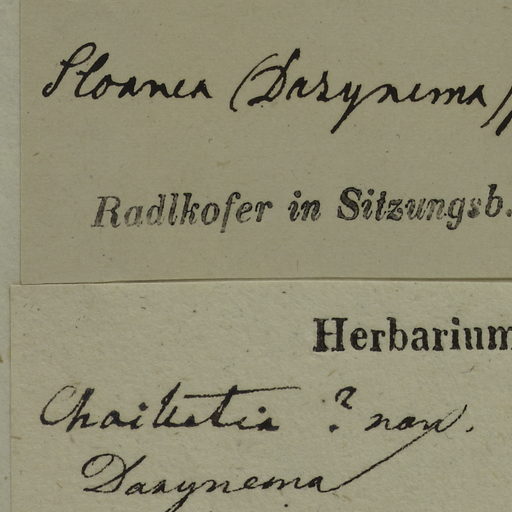 Sloanea (Dasynema)
Radlkofer in Sitzungsb.
Herbarium
Chailletia ? nov.
Dasynema